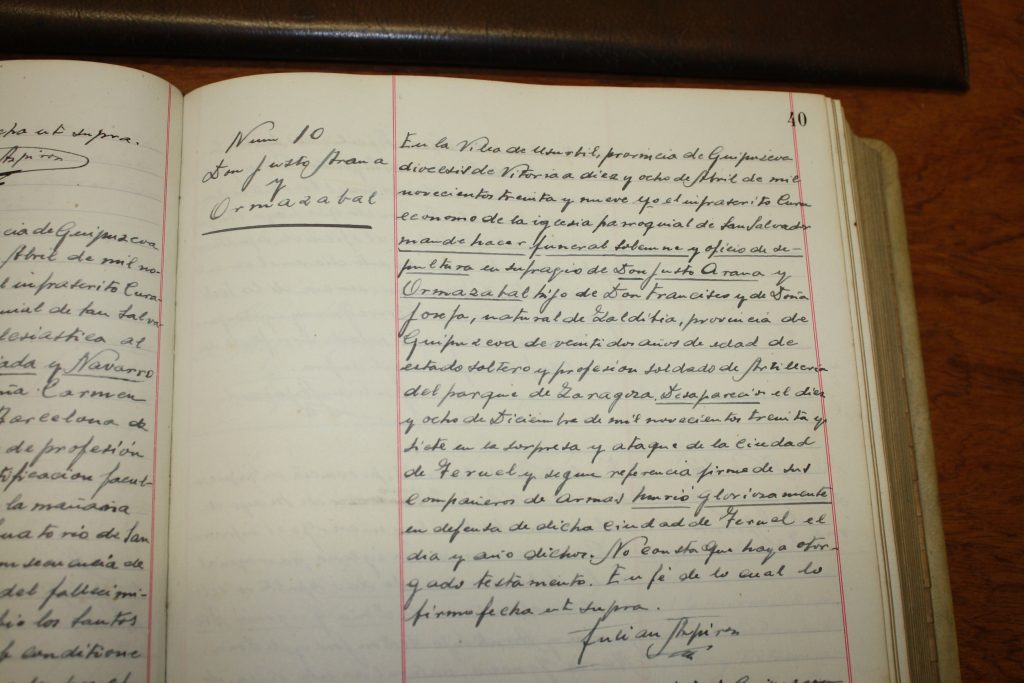 cha ut supra.
Aspiroz
cia de Guipuzcoa
Abril de mil no-
l infrascrito Cura
uial de San Salva-
lesiastica al
ada y Navarro
ña Carmen
Barcelona de
de profesión
tificacion facul-
la mañana
natorio de San
nsecuencia de
del fallecimi-
bio los Santos
b conditione
Num 10
Don Justo Arana
y
Ormazabal
40
En la Villa de Usurbil, provincia de Guipuzcoa
diocesis de Vitoria a diez y ocho de Abril de mil
novecientos treinta y nueve yo el infrascrito Cura
economo de la iglesia parroquial de San Salvador
mande hacer funeral solemne y oficio de se-
pultura en sufragio de Don Justo Arana y
Ormazabal hijo de Don Francisco y de Doña
Josefa, natural de Zaldibia, provincia de
Guipuzcoa de veintidos años de edad de
estado soltero y profesión soldado de Artilleria
del parque de Zaragoza. Desapareció el diez
y ocho de Diciembre de mil novecientos treinta y
siete en la sorpresa y ataque de la Ciudad
de Teruel y segun referencia firme de sus
Compañeros de armas murió gloriosamente
en defensa de dicha Ciudad de Teruel el
dia y año dichos. No consta que haya otor-
gado testamento. En fé de lo cual lo
firmo fecha ut supra.
Julian Aspiroz